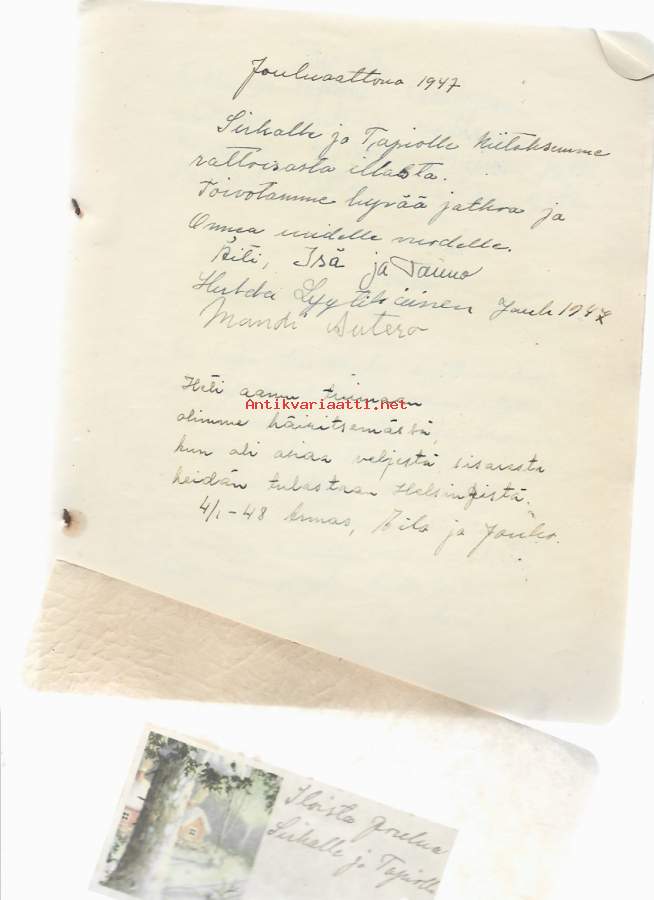 Jouluaattona 1947
Sirkalle ja Tapiolle Kiitoksemme
rattoisasta illasta.
Toivotamme hyvää jatkoa ja
Onnea uudelle vuodelle.
Äiti, Isä ja Tauno
Lyytikäinen Joulu 1947
Mandi Autero
aamu
Antikvariaatti.net
olimme häiritsemässä,
kun oli asiaa veljestä sisaresta
heidän tulostaan Helsingistä.
4/1-48 Armas, Aila ja Jouko.
Iloista Joulua
Sirkalle ja Tapiolle